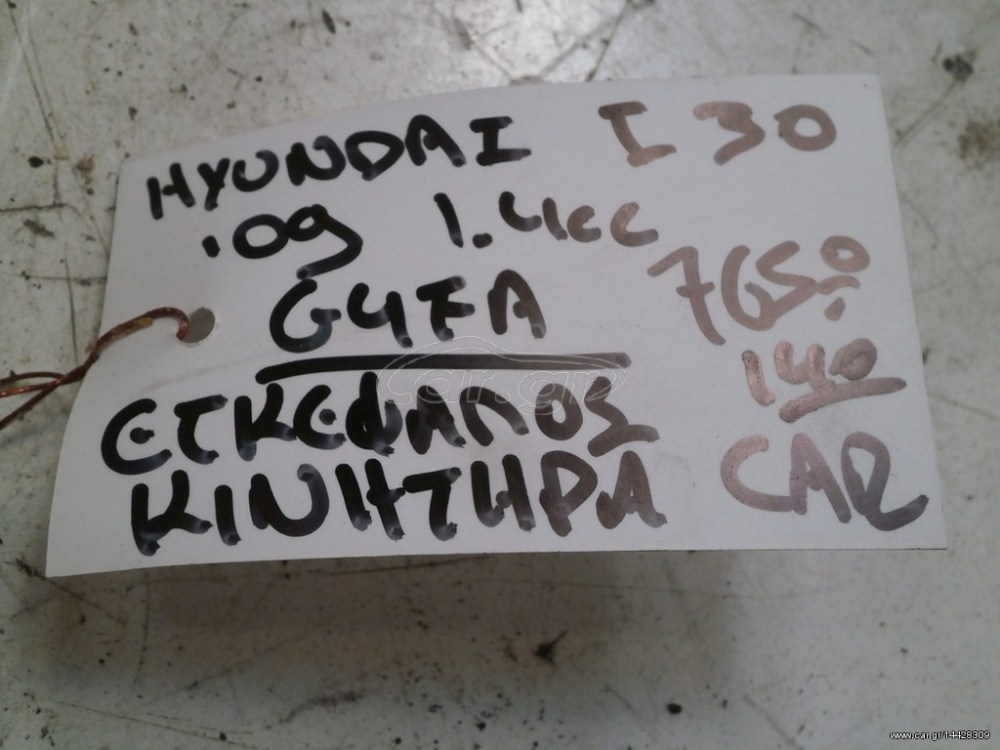 HYUNDAI I 30
'09 1.4cc
G4FA
ΕΓΚΕΦΑΛΟΣ
ΚΙΝΗΤΗΡΑ
140
CAR
car.gr
www.car.gr/14428309